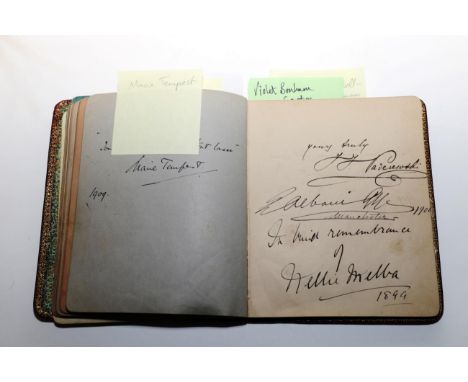 Marie Tempest
Marie Tempest
1909
Violet Vanbrugh
yours truly
Paderewski
E Albani Gye
Manchester 1901
In kind remembrance
of
Nellie Melba
1899